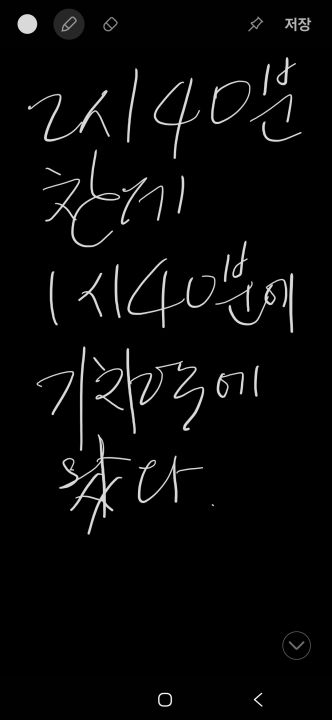 저장
2시 40분
찬데
1시 40분에
기차역에
왔다.